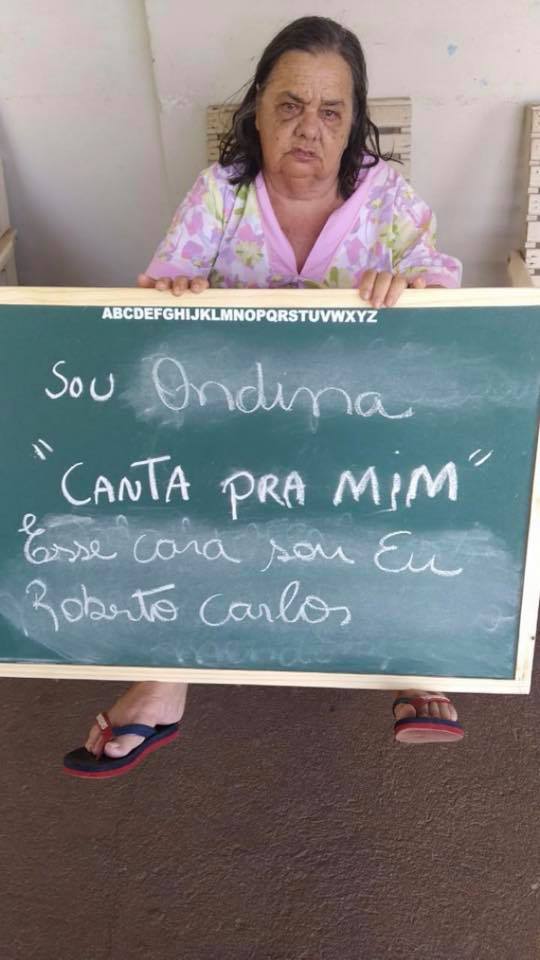 ABCDEFGHIJKLMNOPQRSTUVWXYZ
Sou Ondina
"CANTA PRA MiM"
Esse cara sou Eu
Roberto Carlos